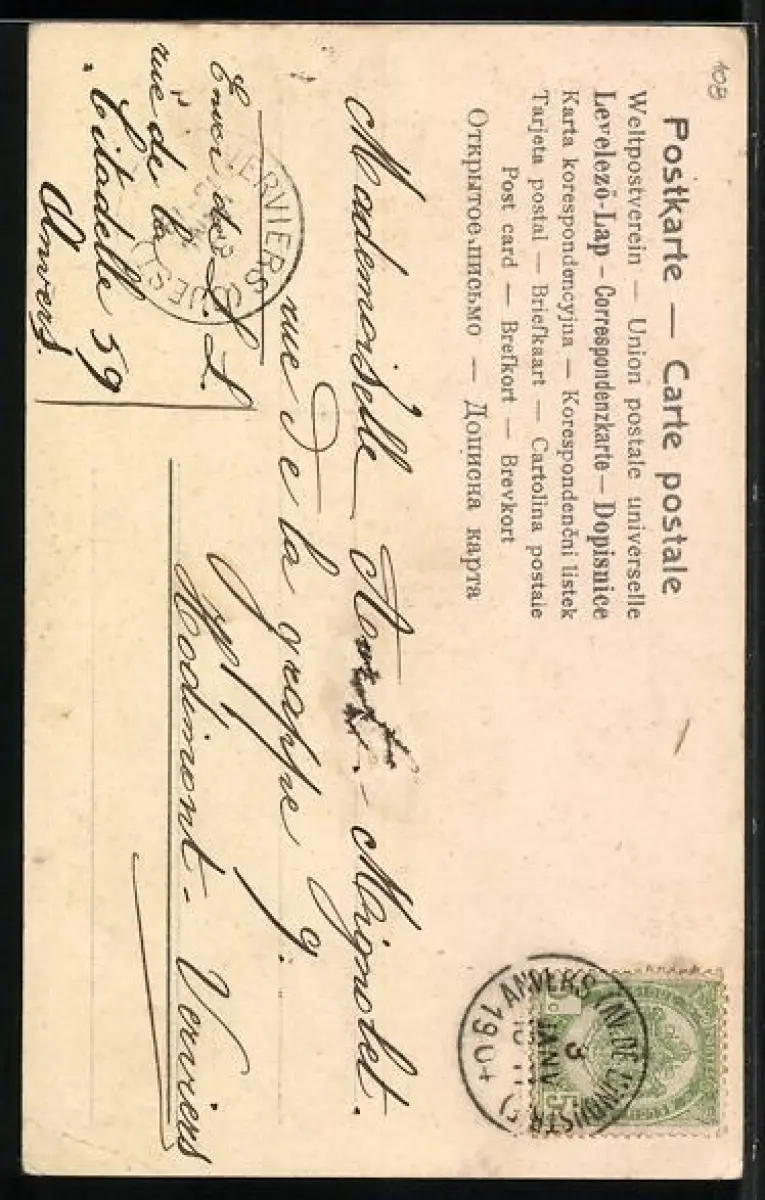 108
Postkarte — Carte postale
Weltpostverein — Union postale universelle
Levelező-Lap – Correspondenzkarte – Dopisnice
Karta korespondencyjna — Korespondenčni listek
Tarjeta postal — Briefkaart — Cartolina postale
Post card — Brefkort — Brevkort
Открытое письмо — Дописна карта
ANVERS (AV. DE L'INDUSTR
3
JANV
190
5
Mademoiselle - Maignolet.
rue De la grappe 9.
Hodimont - Verviers
VERVIERS
Envoi de L. L.
rue de la
Citadelle 59
Anvers.